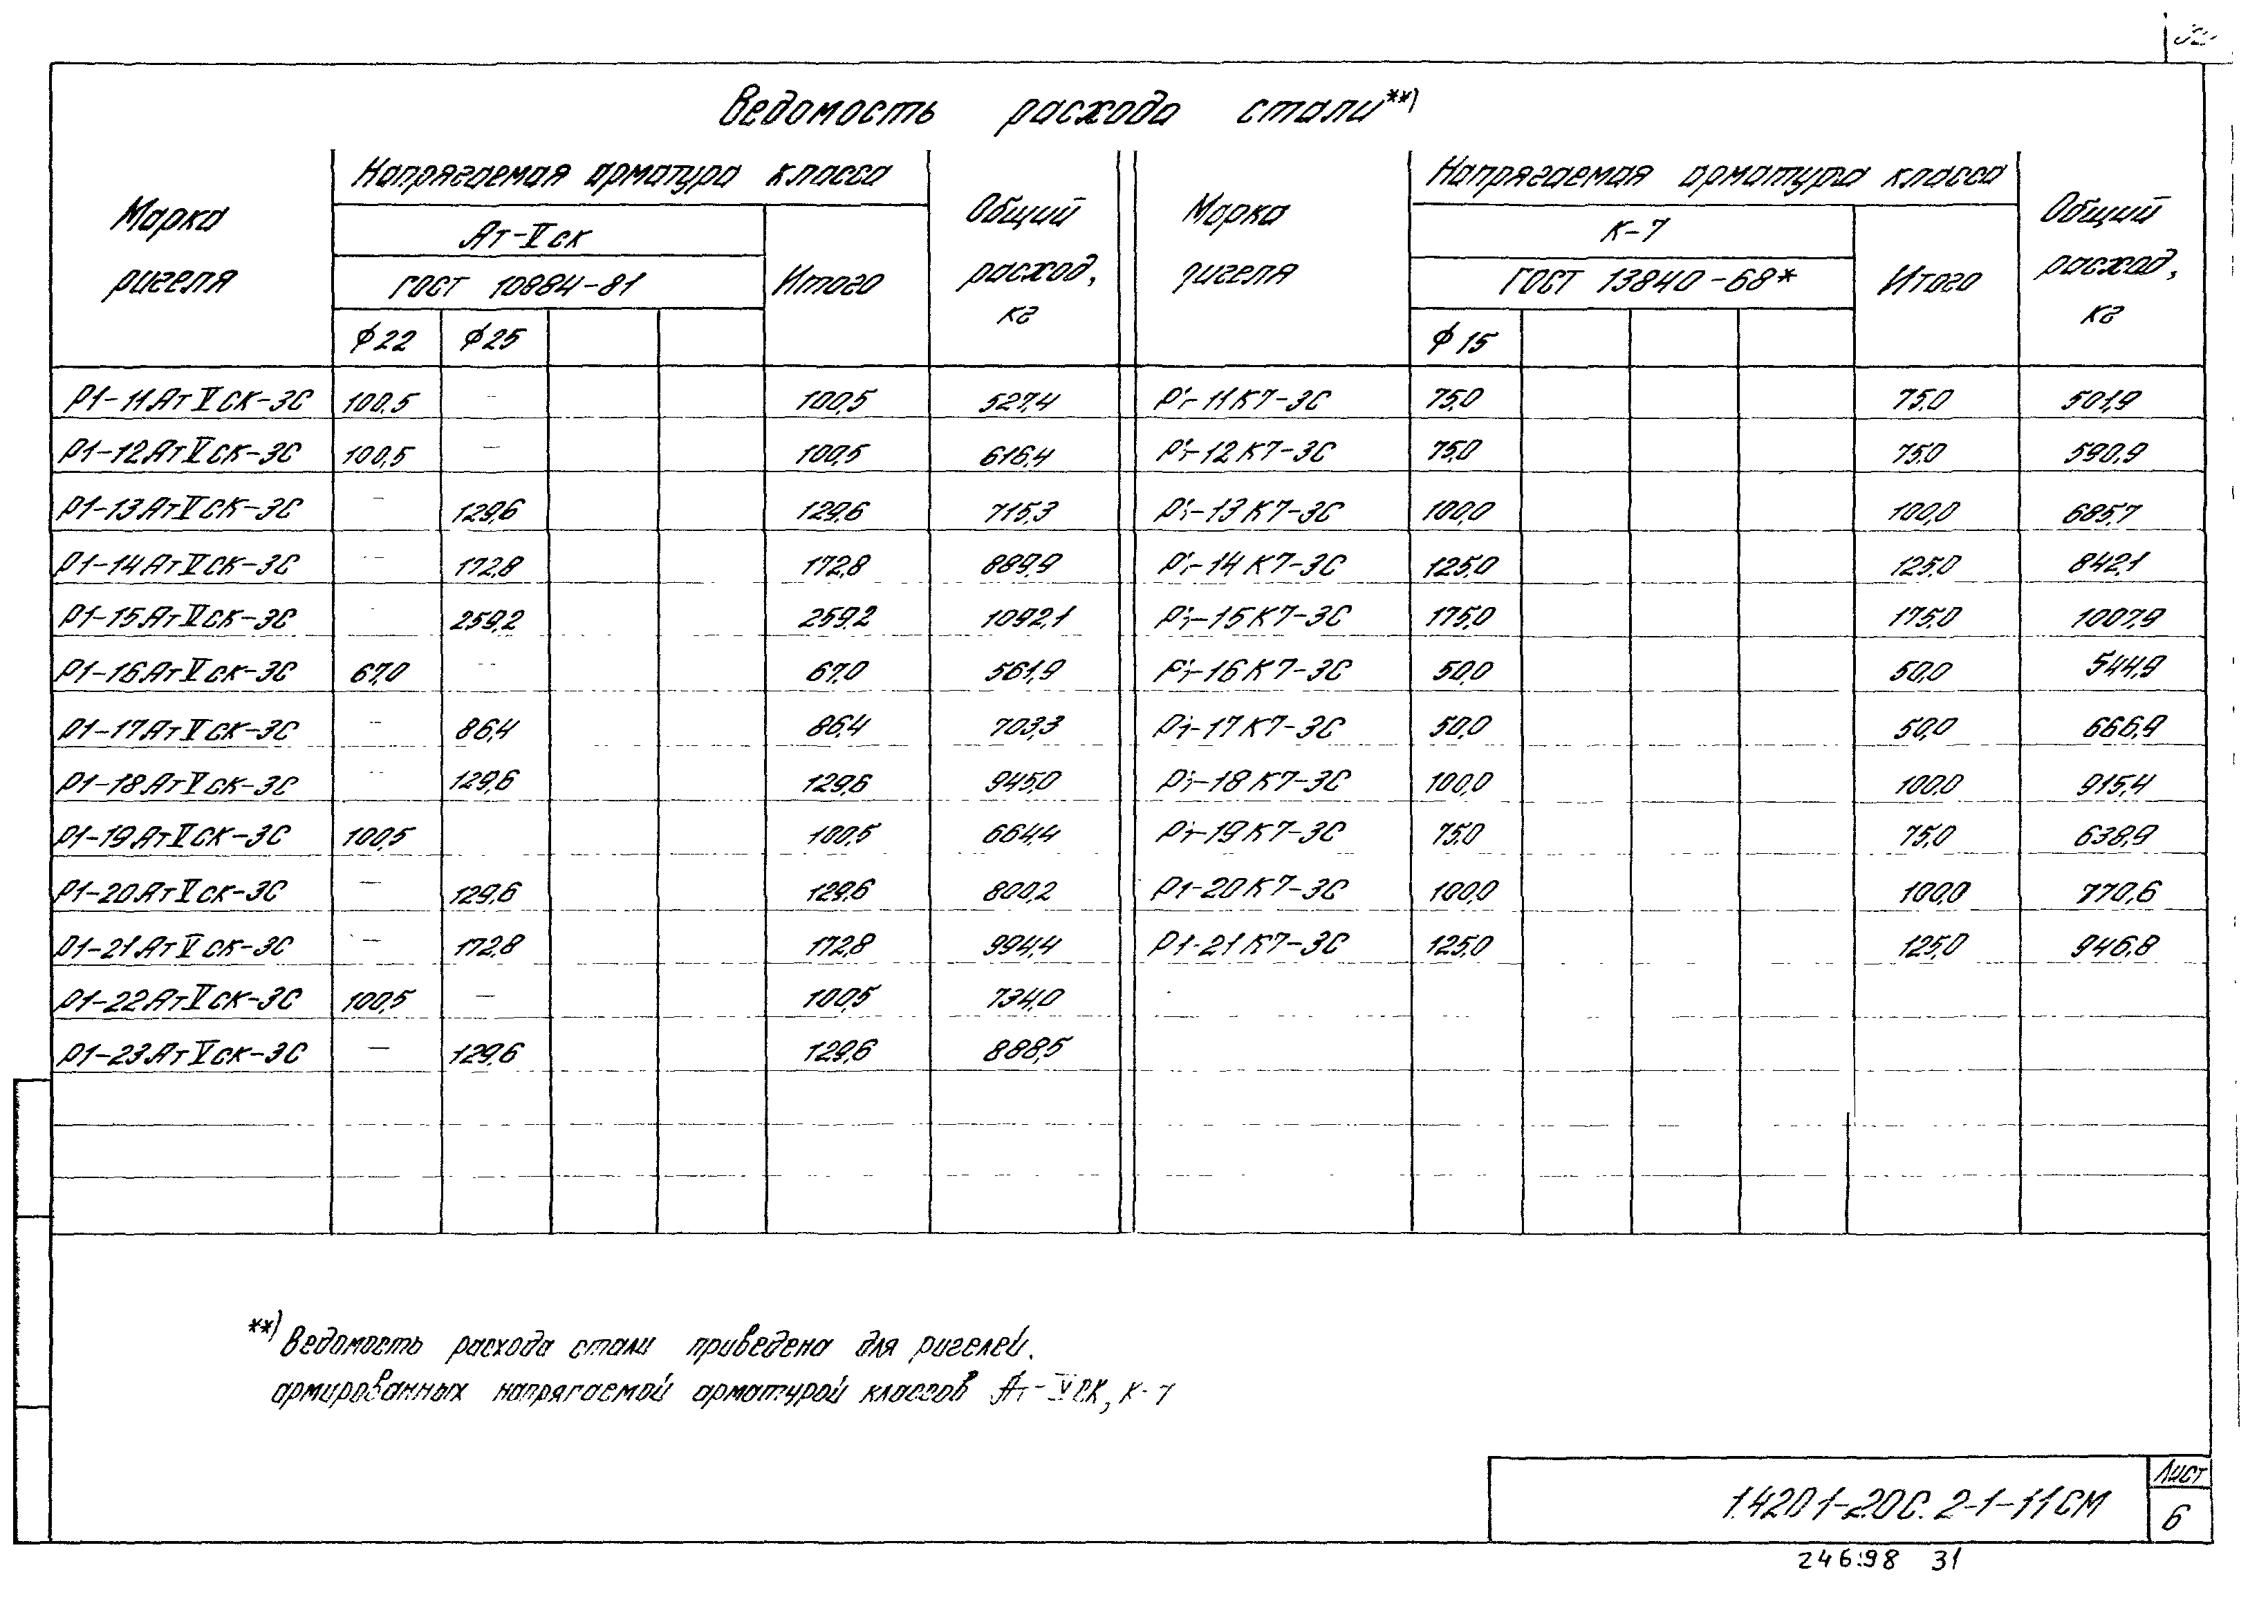 Ведомость расхода стали**)
Марка ригеля | Напрягаемая арматура класса | Общий расход, кг | Марка ригеля | Напрягаемая арматура класса | Общий расход, кг
Ат-Vск | Итого | К-7 | Итого
ГОСТ 10884-81 | ГОСТ 13840-68*
ϕ22 | ϕ25 | ϕ15
Р1-11АтVСК-3С | 100,5 | – | 100,5 | 527,4 | Р1-11К7-3С | 75,0 | 75,0 | 501,9
Р1-12АтVСК-3С | 100,5 | – | 100,5 | 616,4 | Р1-12К7-3С | 75,0 | 75,0 | 590,9
Р1-13АтVСК-3С | – | 129,6 | 129,6 | 715,3 | Р1-13К7-3С | 100,0 | 100,0 | 685,7
Р1-14АтVСК-3С | – | 172,8 | 172,8 | 889,9 | Р1-14К7-3С | 125,0 | 125,0 | 842,1
Р1-15АтVСК-3С | 259,2 | 259,2 | 1092,1 | Р1-15К7-3С | 175,0 | 175,0 | 1007,9
Р1-16АтVСК-3С | 67,0 | – | 67,0 | 561,9 | Р1-16К7-3С | 50,0 | 50,0 | 544,9
Р1-17АтVСК-3С | – | 86,4 | 86,4 | 703,3 | Р1-17К7-3С | 50,0 | 50,0 | 666,9
Р1-18АтVСК-3С | – | 129,6 | 129,6 | 945,0 | Р1-18К7-3С | 100,0 | 100,0 | 915,4
Р1-19АтVСК-3С | 100,5 | 100,5 | 664,4 | Р1-19К7-3С | 75,0 | 75,0 | 638,9
Р1-20АтVСК-3С | – | 129,6 | 129,6 | 800,2 | Р1-20К7-3С | 100,0 | 100,0 | 770,6
Р1-21АтVСК-3С | – | 172,8 | 172,8 | 994,4 | Р1-21К7-3С | 125,0 | 125,0 | 946,8
Р1-22АтVСК-3С | 100,5 | – | 100,5 | 734,0
Р1-23АтVСК-3С | – | 129,6 | 129,6 | 888,5
**) Ведомость расхода стали приведена для ригелей.
армированных напрягаемой арматурой классов Ат-VСК, К-7
1.420.1-20С.2-1-11СМ
Лист
6
24698 31